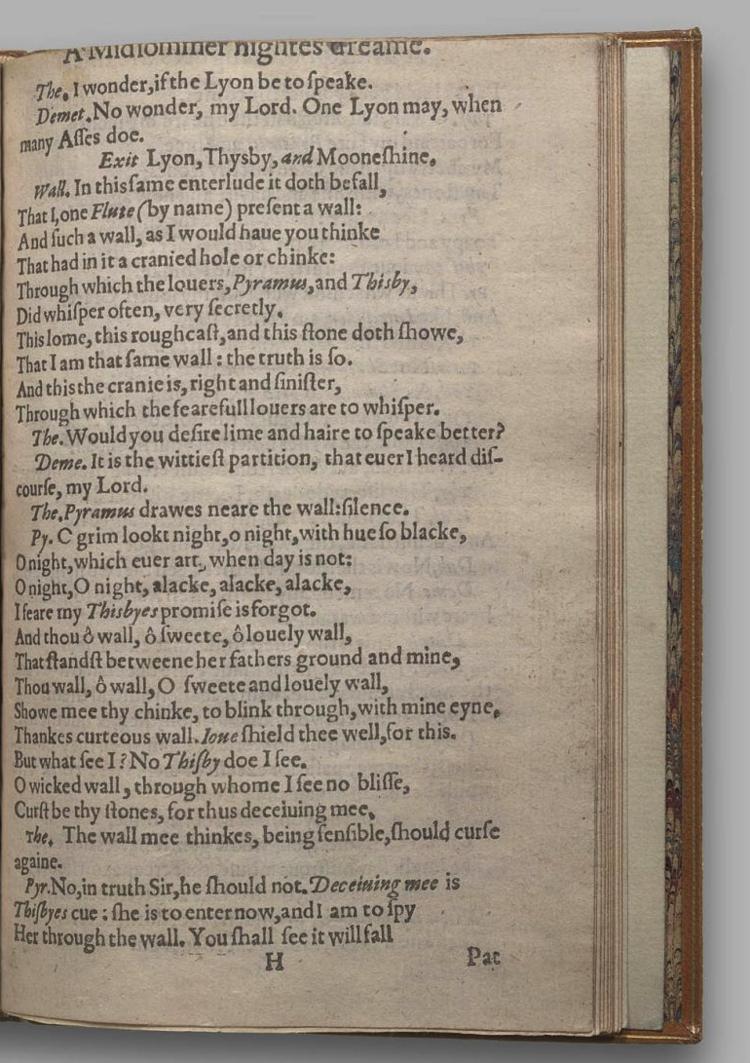 A Midſommer nightes dreame.
The. I wonder, if the Lyon be to ſpeake.
Demet. No wonder, my Lord. One Lyon may, when
many Aſſes doe.
Exit Lyon, Thysby, and Mooneſhine.
Wall. In this ſame enterlude it doth befall,
That I, one Flute (by name) preſent a wall:
And ſuch a wall, as I would haue you thinke
That had in it a cranied hole or chinke:
Through which the louers, Pyramus, and Thisby,
Did whiſper often, very ſecretly.
This lome, this roughcaſt, and this ſtone doth ſhowe,
That I am that ſame wall: the truth is ſo.
And this the cranie is, right and ſiniſter,
Through which the fearefull louers are to whiſper.
The. Would you deſire lime and haire to ſpeake better?
Deme. It is the wittieſt partition, that euer I heard diſ-
courſe, my Lord.
The. Pyramus drawes neare the wall: ſilence.
Py. O grim lookt night, o night, with hue ſo blacke,
O night, which euer art, when day is not:
O night, O night, alacke, alacke, alacke,
I feare my Thisbyes promiſe is forgot.
And thou ô wall, ô ſweete, ô louely wall,
That ſtandſt betweene her fathers ground and mine,
Thou wall, ô wall, O ſweete and louely wall,
Showe mee thy chinke, to blink through, with mine eyne.
Thankes curteous wall. Ioue ſhield thee well, for this.
But what ſee I? No Thiſby doe I ſee.
O wicked wall, through whome I ſee no bliſſe,
Curſt be thy ſtones, for thus deceiuing mee.
The. The wall mee thinkes, being ſenſible, ſhould curſe
againe.
Pyr. No, in truth Sir, he ſhould not. Deceiuing mee is
Thiſbyes cue: ſhe is to enter now, and I am to ſpy
Her through the wall. You ſhall ſee it will fall
H Pat